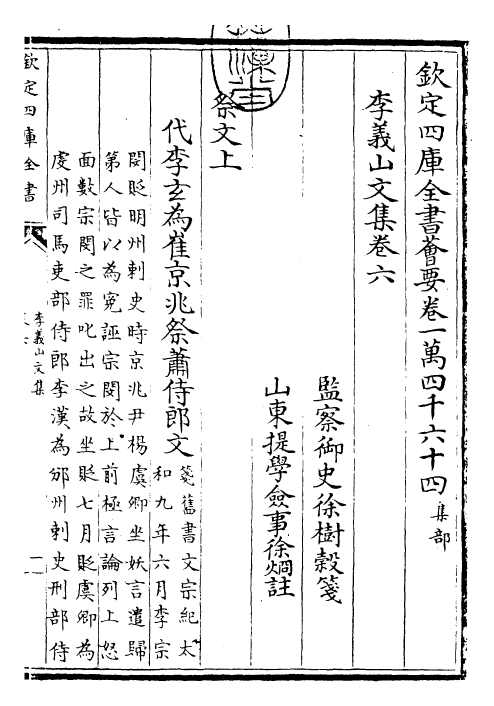 欽定四庫全書薈要卷一萬四千六十四 集部
李義山文集卷六
監察御史徐樹穀箋
山東提學僉事徐炯註
祭文上
代李玄為崔京兆祭蕭侍郎文
箋舊書文宗紀太
和九年六月李宗
閔貶明州刺史時京兆尹楊虞卿坐妖言遣歸
第人皆以為寃誣宗閔於上前極言論列上怒
面數宗閔之罪叱出之故坐貶七月貶虞卿為
虔州司馬吏部侍郎李漢為邠州刺史刑部侍
欽定四庫全書
李義山文集
一